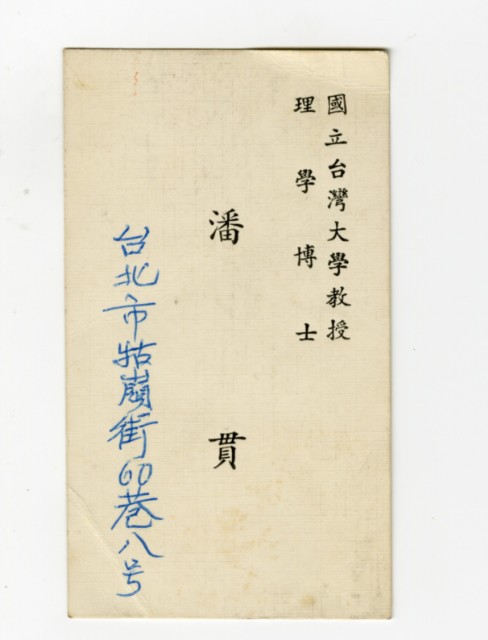 國立台灣大學教授
理學博士
潘貫
台北市牯嶺街60巷八号